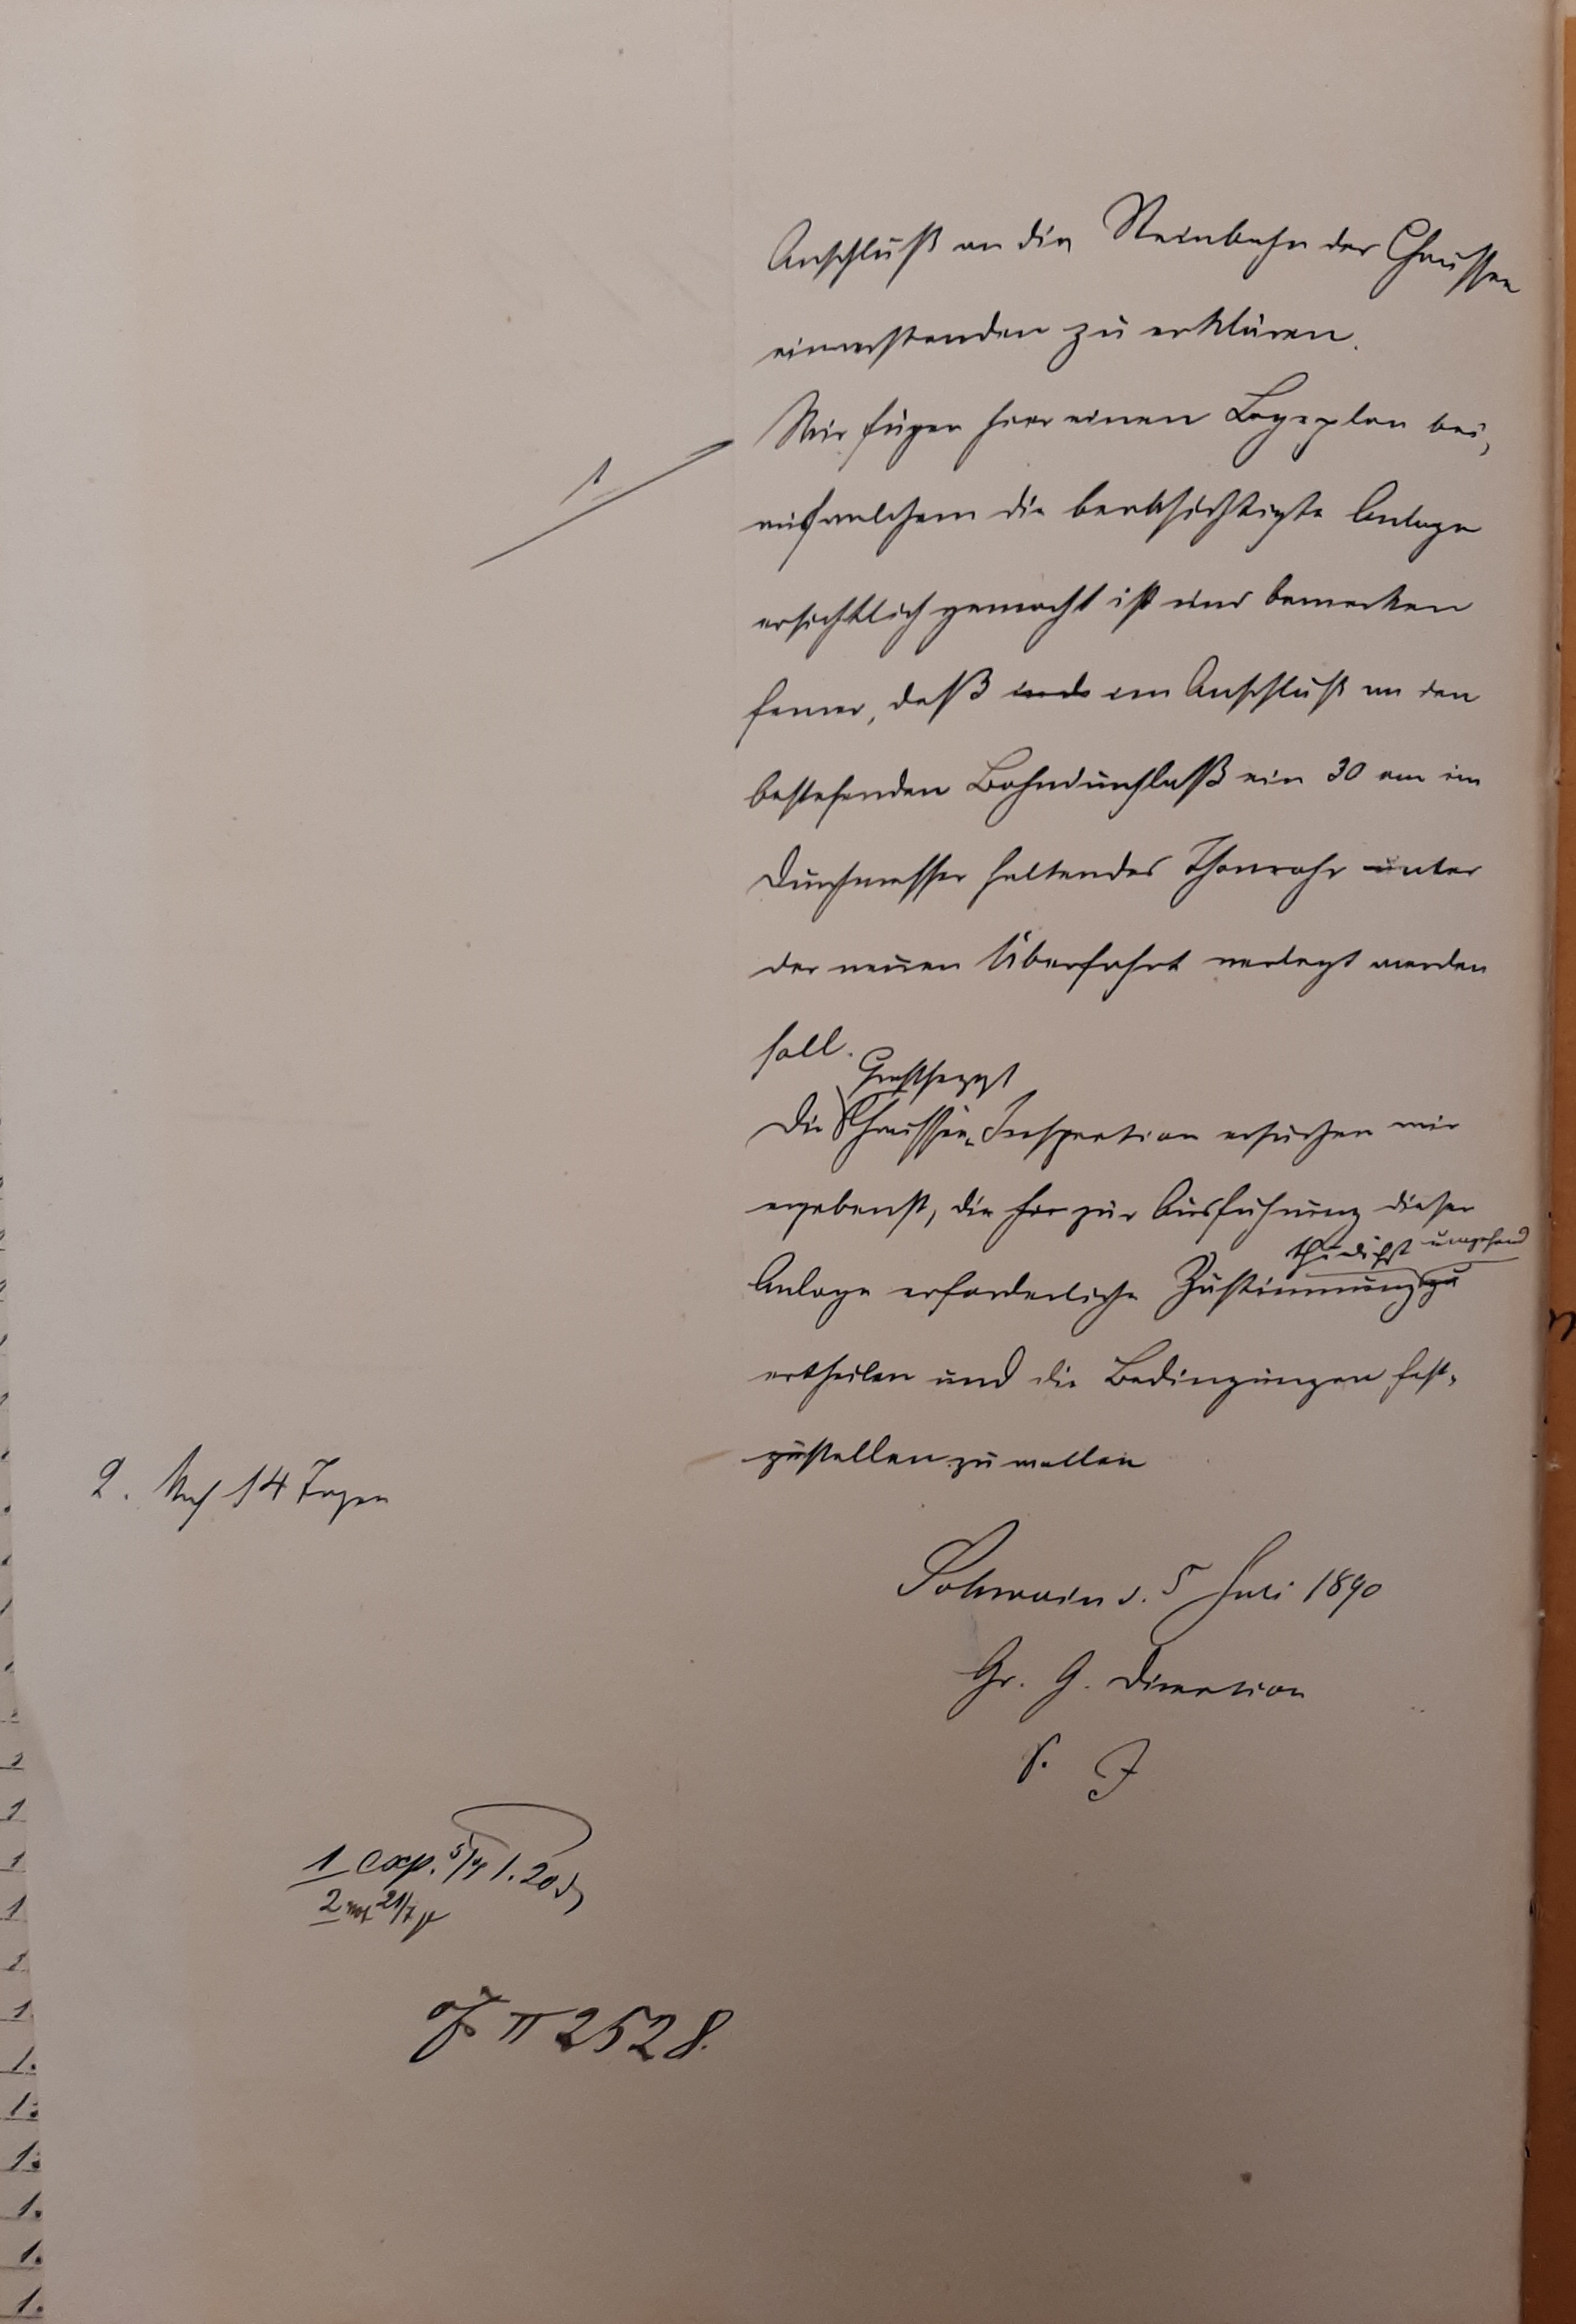 Anschluß an die Steinbahn der Chaussee
einverstanden zu erklären.
Wir fügen hier einen Lageplan bei,
1
auf welchem die beabsichtigte Anlage
ersichtlich gemacht ist und bemerken
ferner, daß im Anschluß an den
bestehenden Bahndurchlaß ein 30 cm im
Durchmesser haltendes Thonrohr unter
der neuen Überfahrt verlegt werden
soll.
Die Chaussee-Inspection ersuchen wir
ergebenst, die zur Ausführung dieser
thunlichst umgehend
Anlage erforderliche Zustimmung zu
ertheilen und die Bedingungen fest-
zustellen zu wollen
2. Nach 14 Tagen
Schwerin d. 5 Juli 1890
Gr. G. Direction
1 exp. 5/7
2 not 21/7
II 2528.
1
1
1
1
1.
1.
1.
1.
1.
1.